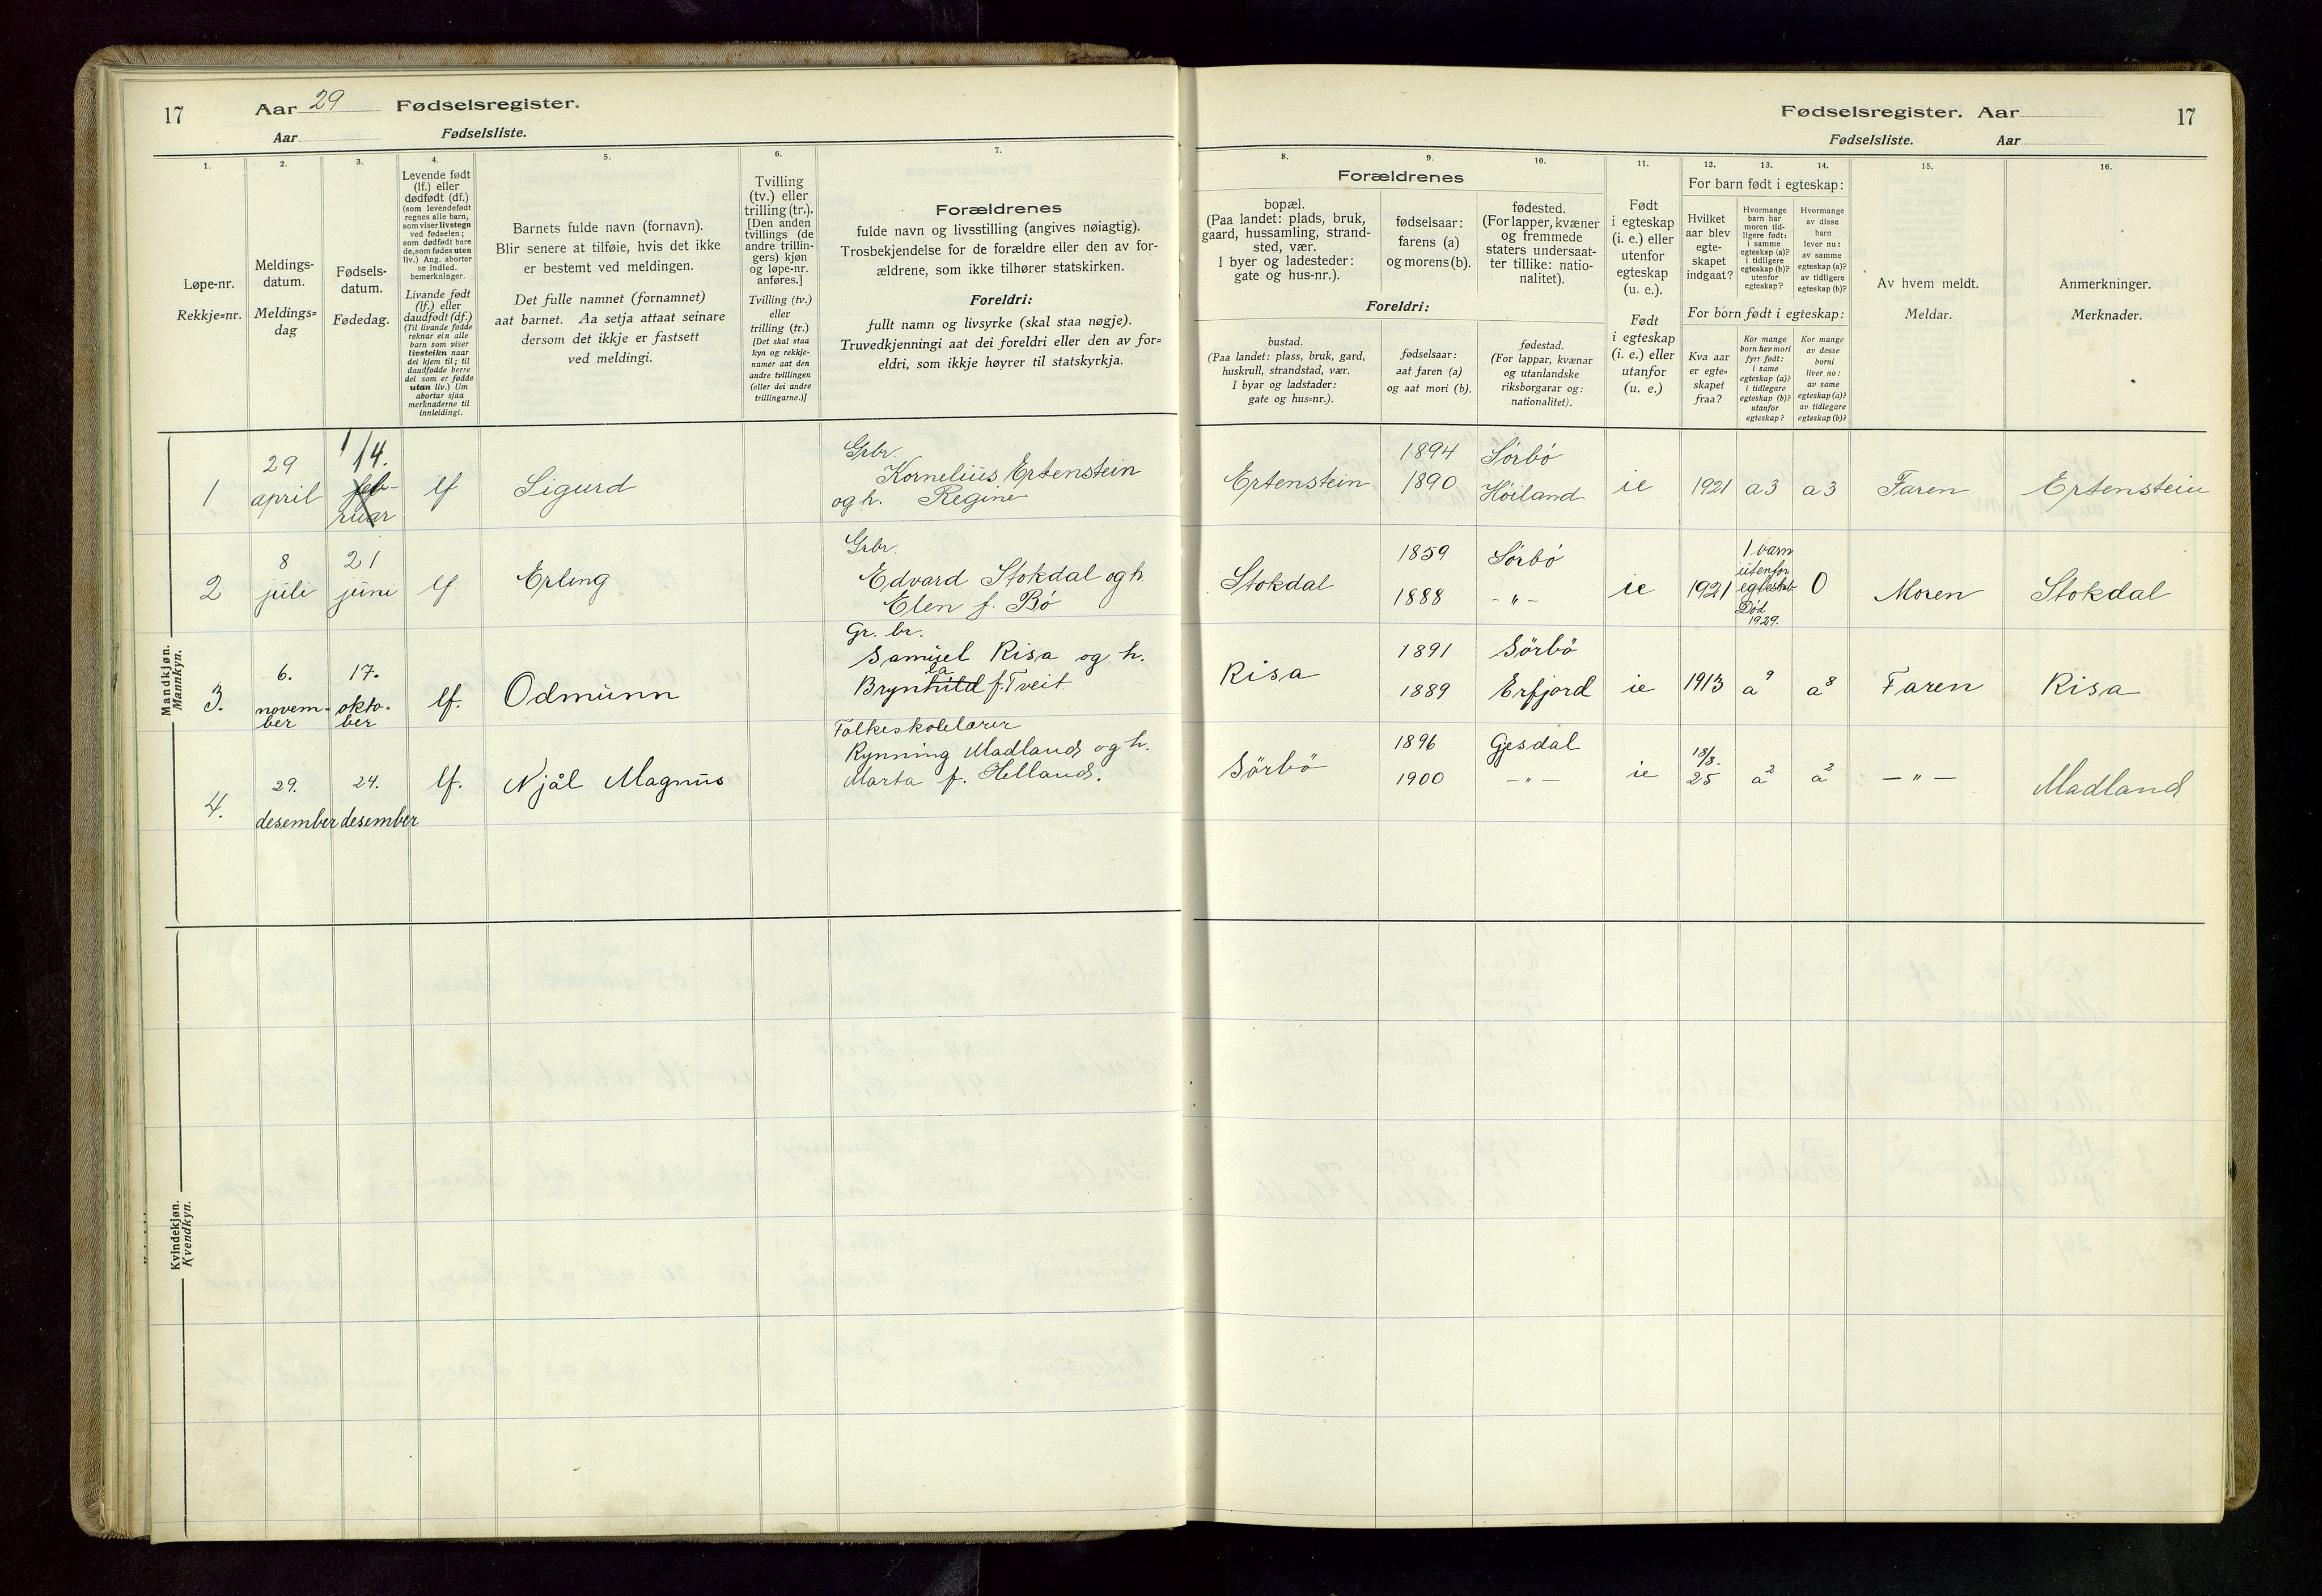 17 Aar 29 Fødselsregister.
Aar Fødselsliste.
1.
Løpe-nr.
Rekkje=nr.
2.
Meldings-
datum.
Meldings=
dag
3.
Fødsels-
datum.
Fødedag.
4.
Levende født
(lf.) eller
dødfødt (df.)
(som levendefødt
regnes alle barn,
som viser livstegn
ved fødselen;
som dødfødt bare
de, som fødes uten
liv.) Ang. aborter
se indled.
bemerkninger.
Livande født
(lf.) eller
daudfødt (df.)
(Til livande fødde
reknar ein alle
barn som viser
livsteikn naar
dei kjem til; til
daudfødde berre
dei som er fødde
utan liv.) Um
abortar sjaa
merknaderne til
innleidingi.
5.
Barnets fulde navn (fornavn).
Blir senere at tilføie, hvis det ikke
er bestemt ved meldingen.
Det fulle namnet (fornamnet)
aat barnet. Aa setja attaat seinare
dersom det ikkje er fastsett
ved meldingi.
6.
Tvilling
(tv.) eller
trilling (tr.).
[Den anden
tvillings (de
andre trillin-
gers) kjøn
og løpe-nr.
anføres.]
Tvilling (tv.)
eller
trilling (tr.)
[Det skal staa
kyn og rekkje-
numer aat den
andre tvillingen
(eller dei andre
trillingarne.)]
7.
Forældrenes
fulde navn og livsstilling (angives nøiagtig).
Trosbekjendelse for de forældre eller den av for-
ældrene, som ikke tilhører statskirken.
Foreldri:
fullt namn og livsyrke (skal staa nøgje).
Truvedkjenningi aat dei foreldri eller den av for=
eldri, som ikkje høyrer til statskyrkja.
Mandkjøn.
Mannkyn.
1
29
april
1/4.
feb-
ruar
lf
Sigurd
Grbr.
Kornelius Ertenstein
og h. Regine
2
8
juli
21
juni
lf
Erling
Grbr.
Edvard Stokdal og h.
Elen f. Bø
3.
6.
novem-
ber
17.
okto-
ber
lf.
Odmunn
Gr. br.
Samuel Risa og h.
la
Brynhild f. Tveit.
4.
29.
desember
24.
desember
lf.
Njål Magnus
Folkeskolelærer
Rynning Madland og h.
Marta f. Helland.
Kvindekjøn.
Kvendkyn.
Fødselsregister. Aar 17
Fødselsliste. Aar
8. 9. 10.
Forældrenes
bopæl.
(Paa landet: plads, bruk,
gaard, hussamling, strand-
sted, vær.
I byer og ladesteder:
gate og hus-nr.).
fødselsaar:
farens (a)
og morens (b).
fødested.
(For lapper, kvæner
og fremmede
staters undersaat-
ter tillike: natio-
nalitet).
Foreldri:
bustad.
(Paa landet: plass, bruk, gard,
huskrull, strandstad, vær.
I byar og ladstader:
gate og hus=nr.).
fødselsaar:
aat faren (a)
og aat mori (b).
fødestad.
(For lappar, kvænar
og utanlandske
riksborgarar og:
nationalitet).
11.
Født
i egteskap
(i. e.) eller
utenfor
egteskap
(u. e.).
Født
i egteskap
(i. e.) eller
utanfor
(u. e.)
12. 13. 14.
For barn født i egteskap:
Hvilket
aar blev
egte-
skapet
indgaat?
Hvormange
barn har
moren tid-
ligere født:
i samme
egteskap (a)?
i tidligere
egteskap (b)?
utenfor
egteskap?
Hvormange
av disse
barn
lever nu:
av samme
egteskap (a)?
av tidligere
egteskap (b)?
For born født i egteskap:
Kva aar
er egte=
skapet
fraa?
Kor mange
born hev mori
fyrr født:
i same
egteskap (a)?
i tidlegare
egteskap (b)?
utanfor
egteskap?
Kor mange
av desse
borni
liver no:
av same
egteskap (a)?
av tidlegare
egteskap (b)?
15.
Av hvem meldt.
Meldar.
16.
Anmerkninger.
Merknader.
Ertenstein
1894
1890
Sørbø
Høiland
ie
1921
a3
a3
Faren
Ertenstein
Stokdal
1859
1888
Sørbø
-"-
ie
1921
1 barn
utenfor
egteskab
Død
1929.
0
Moren
Stokdal
Risa
1891
1889
Sørbø
Erfjord
ie
1913
a9
a8
Faren
Risa
Sørbø
1896
1900
Gjesdal
-"-
ie
18/8.
25
a2
a2
-"-
Madland